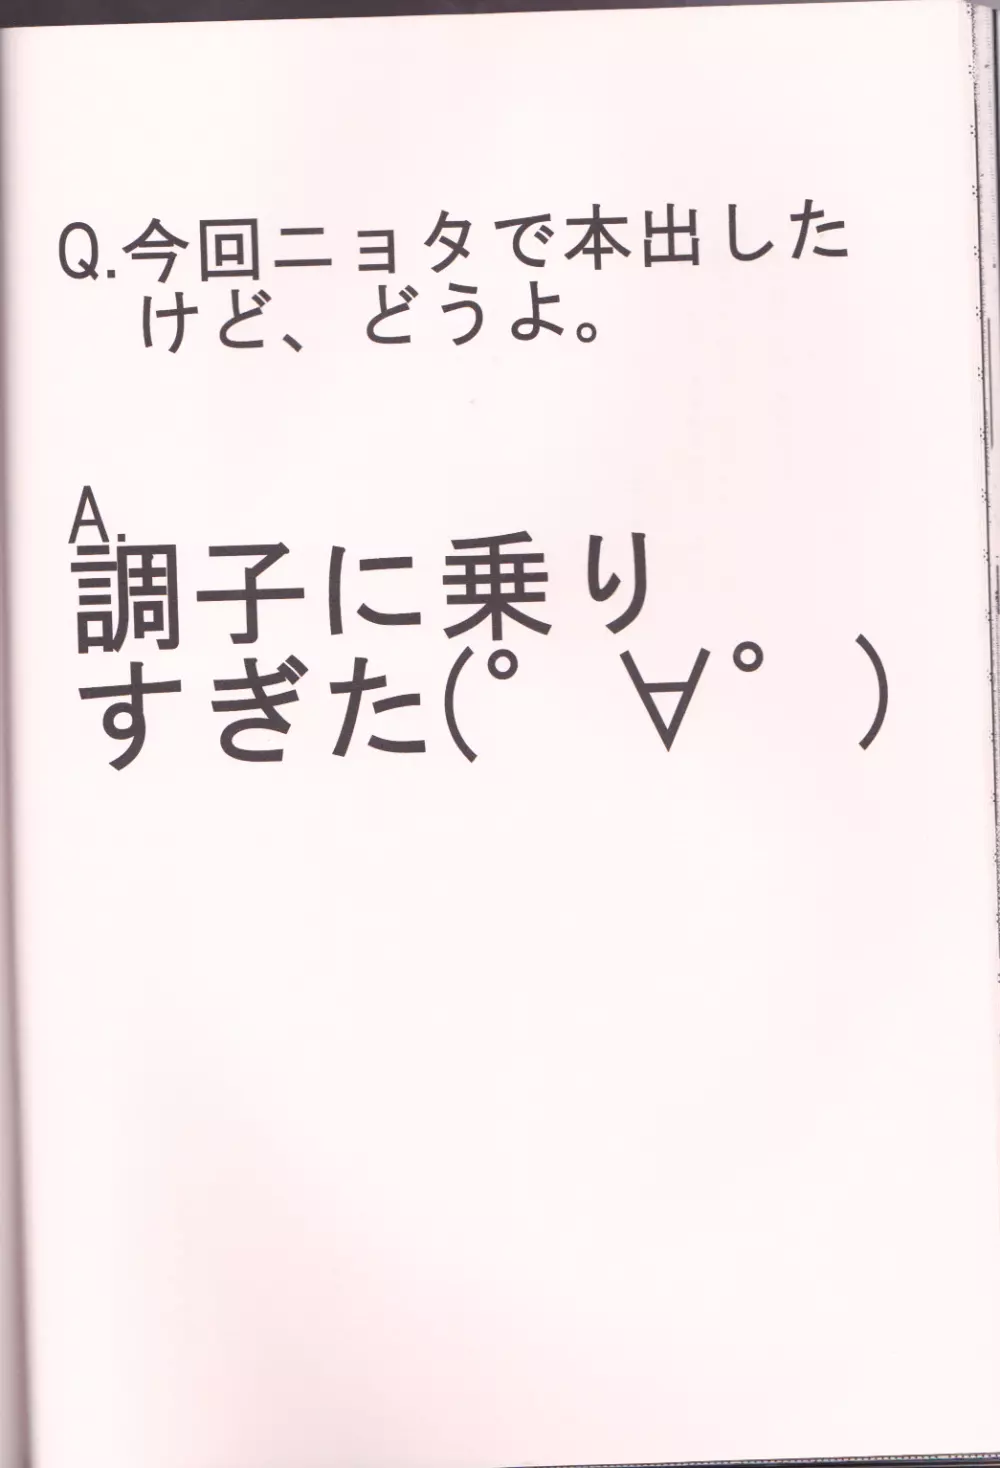 Q.今回ニョタで本出した
けど、どうよ。
A.
調子に乗り
すぎた(゜∀゜)